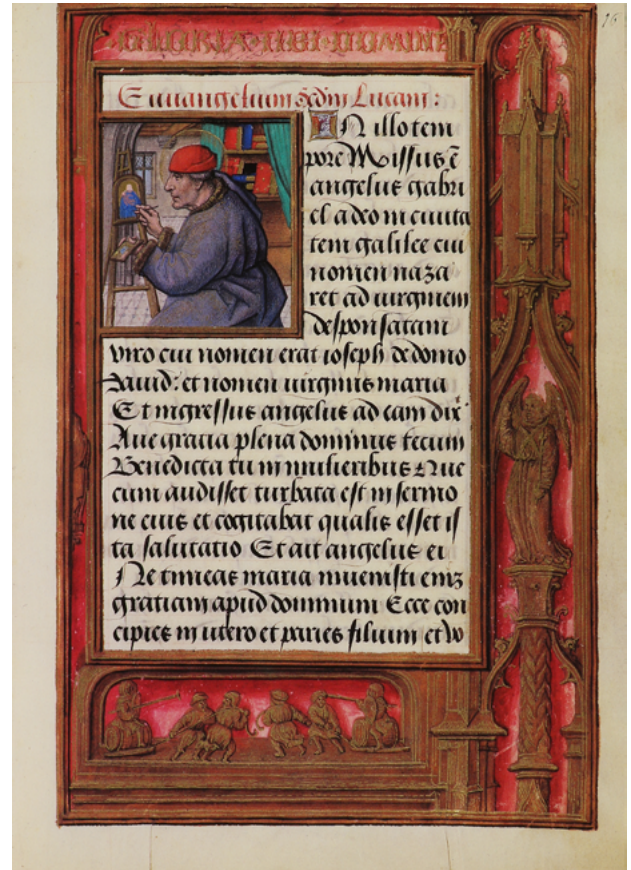 Euuangelium scdm Lucam:
IN illo tem
pore Missus ē
angelus gabri
el a deo in ciuita
tem galilee cui
nomen naza
ret ad uirginem
desponsatam
viro cui nomen erat ioseph de domo
dauid: et nomen uirginis maria
Et ingressus angelus ad eam dix
Aue gracia plena dominus tecum
Benedicta tu in mulieribus Que
cum audisset turbata est in sermo
ne eius et cogitabat qualis esset is
ta salutatio Et ait angelus ei
Ne timeas maria inuenisti enī
gratiam apud dominum Ecce con
cipies in utero et paries filium et vo